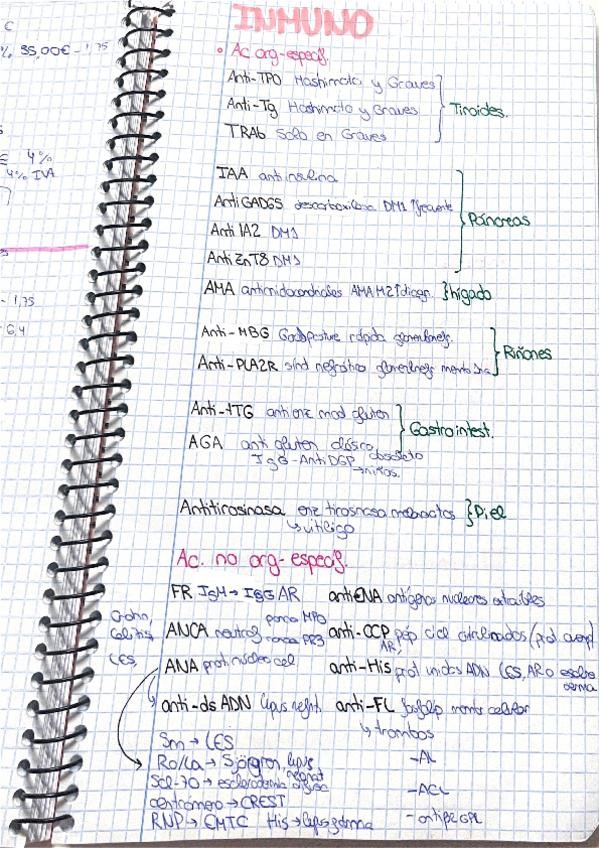 C
% 35,00€ - 1,75
€ 4%
4% IVA
- 1,75
6,4
INMUNO
Ac org-especif.
Anti-TPO Hashimoto y Graves
Anti-Tg Hashimoto y Graves
TRAb Solo en Graves
Tiroides.
IAA antiinsulina
Anti GAD65 descarboxilasa DM1 ↑frecuente
Anti IA2 DM1
Anti ZnT8 DM1
Páncreas
AMA antimitocondriales AMA M2 ↑diagn. } hígado
Anti-MBG Goodpasture rápida glomerulonefr.
Anti-PLA2R sínd nefrótico glomerulonefr
Riñones
Anti-tTG anti enz mod gluten
AGA anti gluten clásico obsoleto
IgG-Anti DGP → niños.
Gastrointest.
Antitirosinasa enz tirosinasa melanocitos } Piel
↳ vitíligo
Ac. no org-especif.
FR IgM → IgG AR antiENA antígenos nucleares extraíbles
Crohn,
Colitis
LES,
ANCA neutrof MPO PR3 anti-CCP pép cicl citrulinados (prot
AR)
ANA prot núcleo cel anti-His prot unidas ADN LES, AR o esclero
derma
anti-ds ADN lupus nefrit anti-FL fosfolip membr celular
↳ trombos
Sm → LES
Ro/La → Sjögren, lupus neonat
Scl-70 → esclerodermia difusa
centrómero → CREST
RNP → EMTC His → lupus
- AL
- ACL
- antiβ2GPI